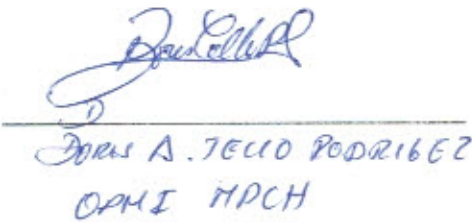 DORIS A. TELLO RODRIGEZ
OPMI MPCH